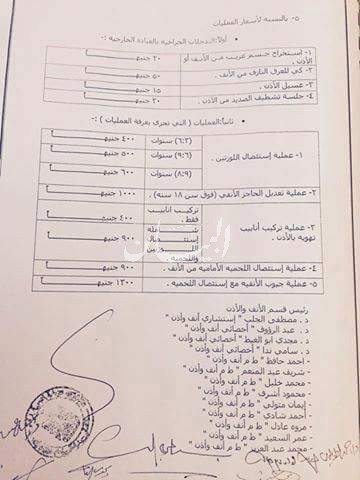 ٥- بالنسبة لأسعار العمليات
أولاً: التدخلات الجراحية بالعيادة الخارجية :-
١- استخراج جسم غريب من الأنف أو الأذن . ٢٠ جنيه
٢- كي للعرق النازف من الأنف . ٥٠ جنيه
٣- غسيل الأذن . ١٥ جنيه
٤- جلسة تنظيف الصديد من الأذن . ٢٠ جنيه
ثانياً: العمليات ( التي تجرى بغرفة العمليات ) :-
١- عملية إستئصال اللوزتين . (٦:٣) سنوات ٤٠٠ جنيه
(٩:٦) سنوات ٥٠٠ جنيه
(٨:٩) سنوات ٦٠٠ جنيه
٢- عملية تعديل الحاجز الأنفي (فوق سن ١٨ سنه) . ١٠٠٠ جنيه
٣- عملية تركيب أنابيب تهوية بالأذن . تركيب أنابيب فقط . ٤٠٠ جنيه
شاملة إستئصال اللوزتين واللحمية . ٩٠٠ جنيه
٤- عملية إستئصال اللحميه الأماميه من الأنف . ٩٠٠ جنيه
٥- عملية جيوب الأنفيه مع إستئصال اللحميه . ١٣٠٠ جنيه
رئيس قسم الأنف والأذن
د . مصطفى الجلب " إستشاري أنف وأذن "
د . عبد الرؤوف " أخصائي أنف وأذن "
د . مجدي ابو الغيط " أخصائي أنف وأذن "
د . سامي ندا " أخصائي أنف وأذن "
- أحمد حافظ " ط م أنف وأذن "
- شريف عبد المنعم " ط م أنف وأذن "
- محمد خليل " ط م أنف وأذن "
- محمود أشرف " ط م أنف وأذن "
- إيمان متولي " ط م أنف وأذن "
- أحمد شادي " ط م أنف وأذن "
- مروه عادل " ط م أنف وأذن "
- عمر السعيد " ط م أنف وأذن "
- محمد عبد العزيز " ط م أنف وأذن "